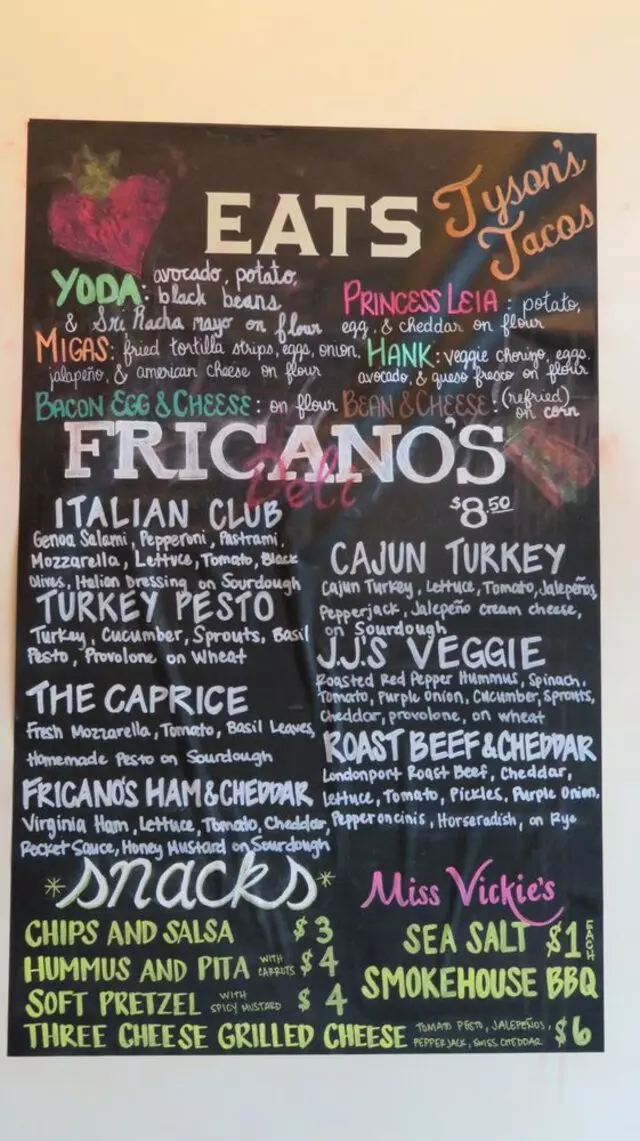 EATS
Tyson's
Tacos
YODA: avocado, potato,
black beans
& Sri Racha mayo on flour
PRINCESS LEIA: potato,
egg, & cheddar on flour
MIGAS: fried tortilla strips, eggs, onion,
jalapeño, & american cheese on flour
HANK: veggie chorizo, eggs.
avocado, & queso fresco on flour
BACON EGG & CHEESE: on flour
BEAN & CHEESE: (refried)
on corn
FRICANO'S
Deli
$8.50
ITALIAN CLUB
Genoa Salami, Pepperoni, Pastrami,
Mozzarella, Lettuce, Tomato, Black
Olives, Italian Dressing on Sourdough
TURKEY PESTO
Turkey, Cucumber, Sprouts, Basil
Pesto, Provolone on Wheat
THE CAPRICE
Fresh Mozzarella, Tomato, Basil Leaves,
Homemade Pesto on Sourdough
FRICANO'S HAM & CHEDDAR
Virginia Ham, Lettuce, Tomato, Cheddar,
Rocket Sauce, Honey Mustard on Sourdough
CAJUN TURKEY
Cajun Turkey, Lettuce, Tomato, Jalepeños,
Pepperjack, Jalepeño cream cheese,
on Sourdough
J.J.'S VEGGIE
Roasted Red Pepper Hummus, Spinach,
Tomato, Purple Onion, Cucumber, Sprouts,
Cheddar, provolone, on wheat
ROAST BEEF & CHEDDAR
Londonport Roast Beef, Cheddar,
Lettuce, Tomato, Pickles, Purple Onion,
Pepperoncinis, Horseradish, on Rye
*snacks*
CHIPS AND SALSA $3
HUMMUS AND PITA WITH CARROTS $4
SOFT PRETZEL WITH SPICY MUSTARD $4
THREE CHEESE GRILLED CHEESE TOMATO PESTO, JALEPEÑOS, PEPPERJACK, SWISS, CHEDDAR $6
Miss Vickie's
SEA SALT $1 EACH
SMOKEHOUSE BBQ